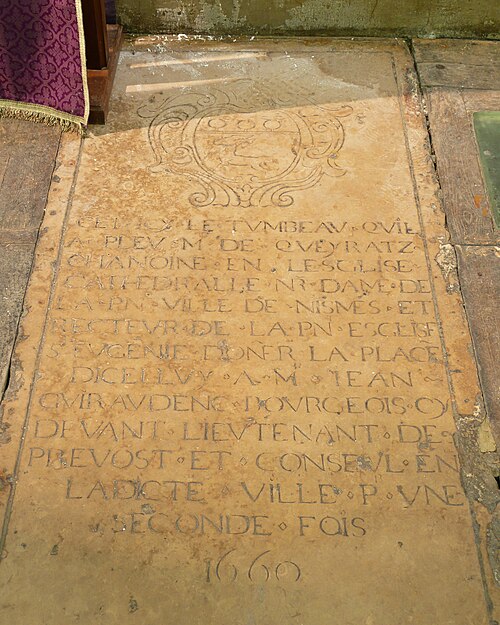 CET ICY LE TVMBEAV QVIL
A PLEV M DE QVEYRATZ
CHANOINE EN LESGLISE
CATHEDRALLE NR DAM DE
LA PNT VILLE DE NISMES ET
RECTEVR DE LA PNT ESGLISE
ST EVGENIE DONER LA PLACE
DICELLVY A M IEAN
GVIRAVDENC BOVRGEOIS CY
DEVANT LIEVTENANT DE
PREVOST ET CONSEVL EN
LADICTE VILLE P VNE
SECONDE FOIS
1660